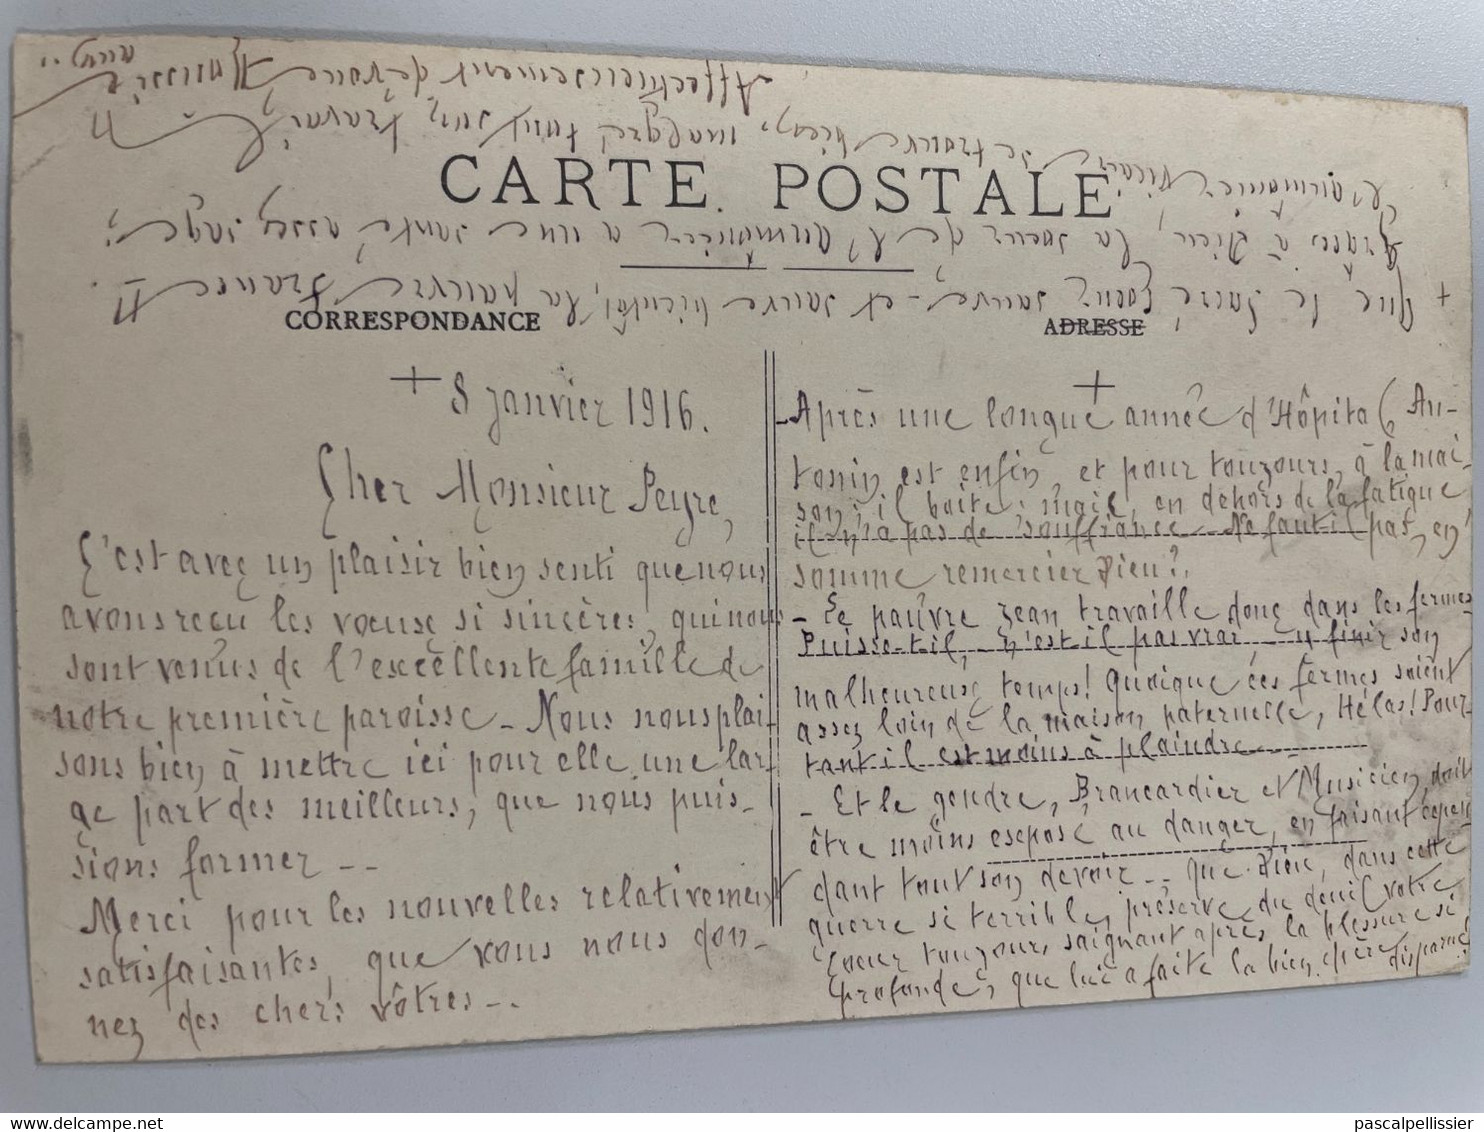 CARTE POSTALE
CORRESPONDANCE
ADRESSE
+ 8 janvier 1916.
Cher Monsieur Peyre,
C'est avec un plaisir bien senti que nous
avons reçu les vœux si sincères, qui nous
sont venus de l'excellente famille de
notre première paroisse - Nous nous plai-
sons bien à mettre ici pour elle, une lar-
ge part des meilleurs, que nous puis-
sions former --
Merci pour les nouvelles relativement
satisfaisantes, que vous nous don-
nez des chers vôtres --
+
- Après une longue année d'Hôpital, An-
tonin est enfin, et pour toujours, à la mai-
son; il boite; mais, en dehors de la fatigue
il n'a pas de souffrance - Ne faut il pas, en
somme remercier Dieu?
- Le pauvre Jean travaille donc dans les fermes
Puisse-t-il, n'est il pas vrai, y finir son
malheureux temps! Quoique ces fermes soient
assez loin de la maison paternelle, Hélas! Pour-
tant il est moins à plaindre
- Et le gendre, Brancardier et Musicien, doit
être moins exposé au danger, en faisant cepen-
dant tout son devoir -- que Dieu, dans cette
guerre si terrible, préserve du deuil votre
cœur toujours saignant après la blessure si
profonde, que lui a faite la bien chère disparue!
+ Que le Sacré Cœur sauve - et sauve bientôt, la pauvre France!!
Grâces à Dieu, la sœur de l'aumônier a une santé assez
L'aumônier Vicaire se trouve bien, malgré tout son travail
Affectueusement